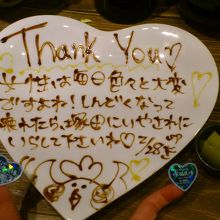 Thank You♡
女性は毎日色々と大変
ですよね!しんどくなって
疲れたら、塚田にいやされに
いらして下さいね♡